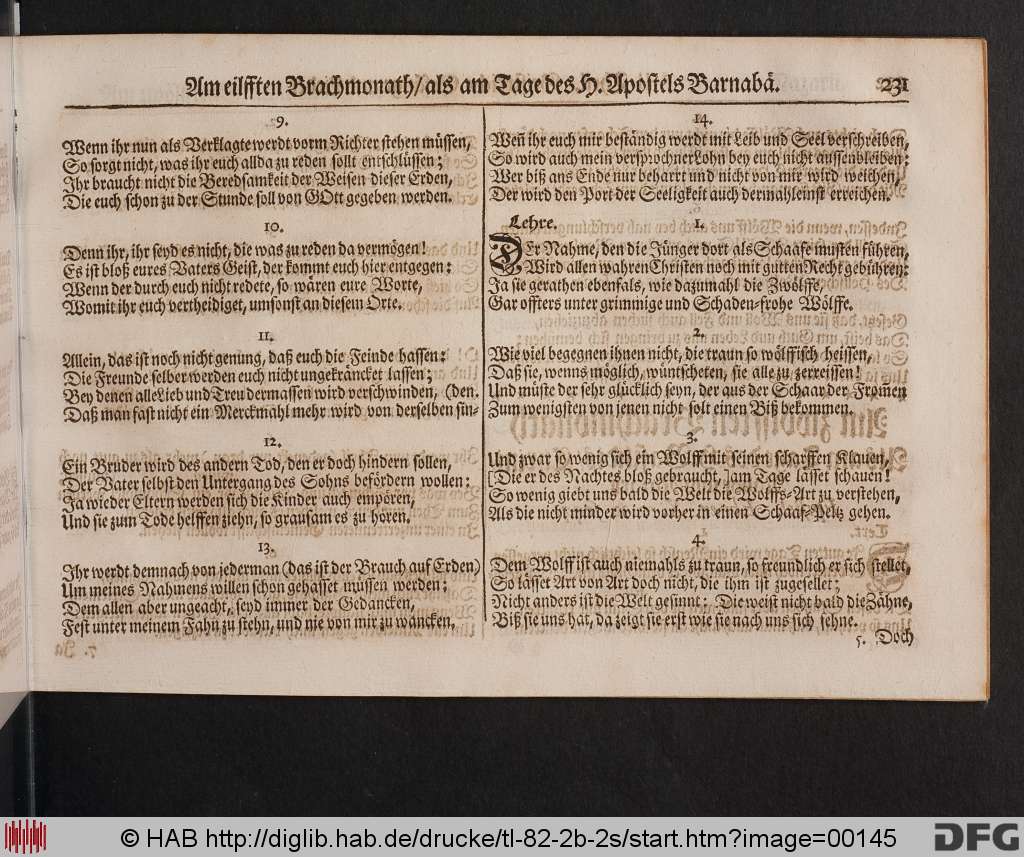 Am eilfften Brachmonath/ als am Tage des H. Apostels Barnabä. 231
9.
Wenn ihr nun als Verklagte werdt vorm Richter stehen müssen,
So sorgt nicht, was ihr euch allda zu reden sollt entschlüssen;
Ihr braucht nicht die Beredsamkeit der Weisen dieser Erden,
Die euch schon zu der Stunde soll von GOtt gegeben werden.
10.
Denn ihr, ihr seyd es nicht, die was zu reden da vermögen!
Es ist bloß eures Vaters Geist, der kommt euch hier entgegen:
Wenn der durch euch nicht redete, so wären eure Worte,
Womit ihr euch vertheidiget, umsonst an diesem Orte.
11.
Allein, das ist noch nicht genung, daß euch die Feinde hassen:
Die Freunde selber werden euch nicht ungekräncket lassen;
Bey denen alle Lieb und Treu dermassen wird verschwinden, (den.
Daß man fast nicht ein Merckmahl mehr wird von derselben fin-
12.
Ein Bruder wird des andern Tod, den er doch hindern sollen,
Der Vater selbst den Untergang des Sohns befördern wollen:
Ja wieder Eltern werden sich die Kinder auch empören,
Und sie zum Tode helffen ziehn, so grausam es zu hören.
13.
Ihr werdt demnach von jederman (das ist der Brauch auf Erden)
Um meines Nahmens willen schon gehasset müssen werden;
Dem allen aber ungeacht, seyd immer der Gedancken,
Fest unter meinem Fahn zu stehn, und nie von mir zu wancken.
14.
Weñ ihr euch mir beständig werdt mit Leib und Seel verschreiben,
So wird auch mein versprochner Lohn bey euch nicht aussenbleiben:
Wer biß ans Ende nur beharrt und nicht von mir wird weichen,
Der wird den Port der Seeligkeit auch dermahleinst erreichen.
Lehre. 1.
DEr Nahme, den die Jünger dort als Schaafe musten führen,
Wird allen wahren Christen noch mit gutten Recht gebühren:
Ja sie gerathen ebenfals, wie dazumahl die Zwölffe,
Gar offters unter grimmige und Schaden-frohe Wölffe.
2.
Wie viel begegnen ihnen nicht, die traun so wölffisch heissen,
Daß sie, wenns möglich, wüntscheten, sie alle zu zerreissen!
Und müste der sehr glücklich seyn, der aus der Schaar der Fromen
Zum wenigsten von jenen nicht solt einen Biß bekommen.
3.
Und zwar so wenig sich ein Wolff mit seinen scharffen Klauen,
[Die er des Nachtes bloß gebraucht,] am Tage lässet schauen!
So wenig giebt uns bald die Welt die Wolffs-Art zu verstehen,
Als die nicht minder wird vorher in einen Schaaf-Peltz gehen.
4.
Dem Wolff ist auch niemahls zu traun, so freundlich er sich stellet,
So lässet Art von Art doch nicht, die ihm ist zugesellet;
Nicht anders ist die Welt gesinnt: Die weist nicht bald die Zähne,
Biß sie uns hat, da zeigt sie erst wie sie nach uns sich sehne.
5. Doch
© HAB http://diglib.hab.de/drucke/tl-82-2b-2s/start.htm?image=00145
DFG